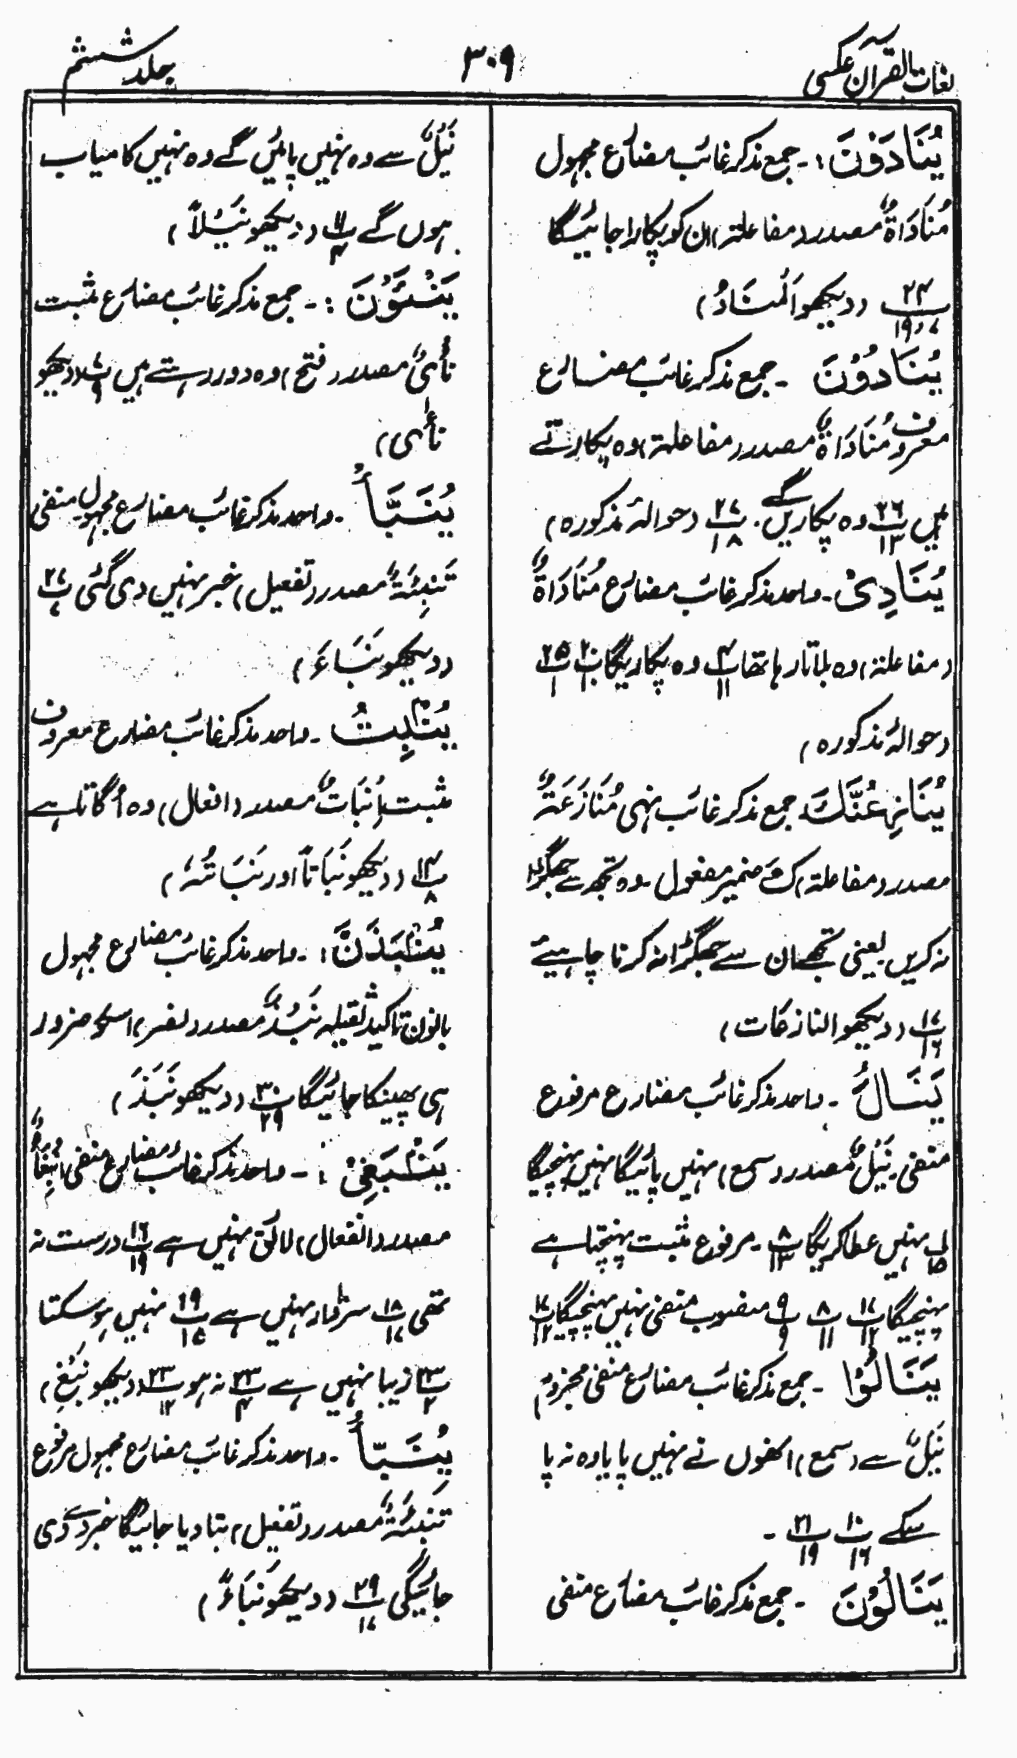 لغات القرآن عکسی
۳۰۹
جلد ششم
یُنَادَوْنَ :۔ جمع مذکر غائب مضارع مجہول
مُنَادَاةٌ مصدر (مفاعلۃ) ان کو پکارا جائیگا
۲۴/۱۹،۷ (دیکھو اَلْمُنَادِ)
یُنَادُوْنَ ۔ جمع مذکر غائب مضارع
معروف مُنَادَاةٌ مصدر (مفاعلۃ) وہ پکارتے
ہیں پ۲۶/۱۳ وہ پکاریں گے۔ پ۲۷/۱۸ (حوالۂ مذکورہ)
یُنَادِیْ۔ واحد مذکر غائب مضارع مُنَادَاةٌ
(مفاعلۃ) وہ بلاتا رہا تھا پ۴/۱۱ وہ پکاریگا پ۲۰/۱۰ پ۲۵/۱
(حوالۂ مذکورہ)
یُنَازِعُنَّكَ۔ جمع مذکر غائب نہی مُنَازَعَۃٌ
مصدر (مفاعلۃ) كَ ضمیر مفعول۔ وہ تجھ سے جھگڑا
نہ کریں یعنی تجھے ان سے جھگڑا نہ کرنا چاہیئے
پ۱۷/۱۶ (دیکھو النازعات)
یَنَالُ ۔ واحد مذکر غائب مضارع مرفوع
منفی۔ نَیْلٌ مصدر (سمع) نہیں پائیگا نہیں پہنچیگا
پ۱/۱۵ نہیں عطا کریگا پ۸/۱۳۔ مرفوع مثبت پہنچتا ہے
پہنچیگا پ۱۷/۱۲ پ۸/۱۱ پ۹/۹ منصوب منفی نہیں پہنچیگا پ۱۷/۱۲
یَنَالُوْا ۔ جمع مذکر غائب مضارع منفی مجزوم
نَیْلٌ سے (سمع) انھوں نے نہیں پایا وہ نہ پا
سکے پ۱۰/۱۶ پ۲۱/۱۹ ۔
یَنَالُوْنَ ۔ جمع مذکر غائب مضارع منفی
نَیْلٌ سے وہ نہیں پائیں گے وہ نہیں کامیاب
ہوں گے پ۱۱/۴ (دیکھو نَیْلًا)
یَنْئَوْنَ :۔ جمع مذکر غائب مضارع مثبت
نَأْیٌ مصدر (فتح) وہ دور رہتے ہیں پ۷/۹ (دیکھو
نَأٰی)
یُنَبَّأْ ۔ واحد مذکر غائب مضارع مجہول منفی
تَنْبِئَۃٌ مصدر (تفعیل) خبر نہیں دی گئی پ۲۷/۷
(دیکھو نَبَاءَ)
یُنْۢبِتُ ۔ واحد مذکر غائب مضارع معروف
مثبت اِنْبَاتٌ مصدر (افعال) وہ اُگاتا ہے
پ۱۴/۸ (دیکھو نَبَاتًا اور نَبَاتُہٗ)
یُنْۢبَذَنَّ :۔ واحد مذکر غائب مضارع مجہول
بانون تاکید ثقیلہ نَبْذٌ مصدر (نصر) اسکو ضرور
ہی پھینکا جائیگا پ۳۰/۲۹ (دیکھو نَبَذَ)
یَنْۢبَغِیْ :۔ واحد مذکر غائب مضارع منفی اِنْبِغَاءٌ
مصدر (انفعال) لائق نہیں ہے پ۱۶/۱۹ درست نہ
تھی پ۱۸/۱۷ سزاوار نہیں ہے پ۱۹/۱۵ نہیں ہو سکتا
پ۲۳/۲ زیبا نہیں ہے پ۲۳/۴ نہ ہو پ۲۳/۱۲ (دیکھو نَبْغِ)
یُنَبَّأُ ۔ واحد مذکر غائب مضارع مجہول مرفوع
تَنْبِئَۃٌ مصدر (تفعیل) بتا دیا جائیگا خبر دے دی
جائیگی پ۲۹/۱۷ (دیکھو نَبَاءً)